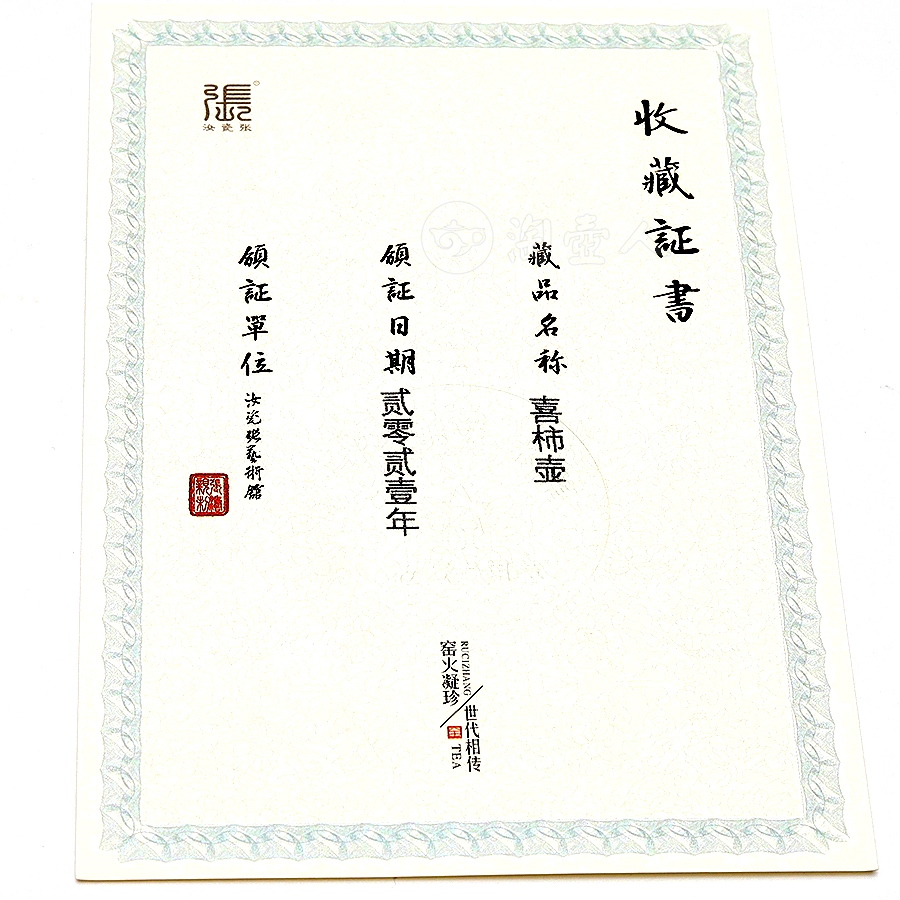 收藏証書
藏品名称 喜柿壶
領証日期 贰零贰壹年
領証單位 汝瓷張藝術館
張
汝瓷张
RUCIZHANG
窑火凝珍
世代相传
TEA
淘壶人